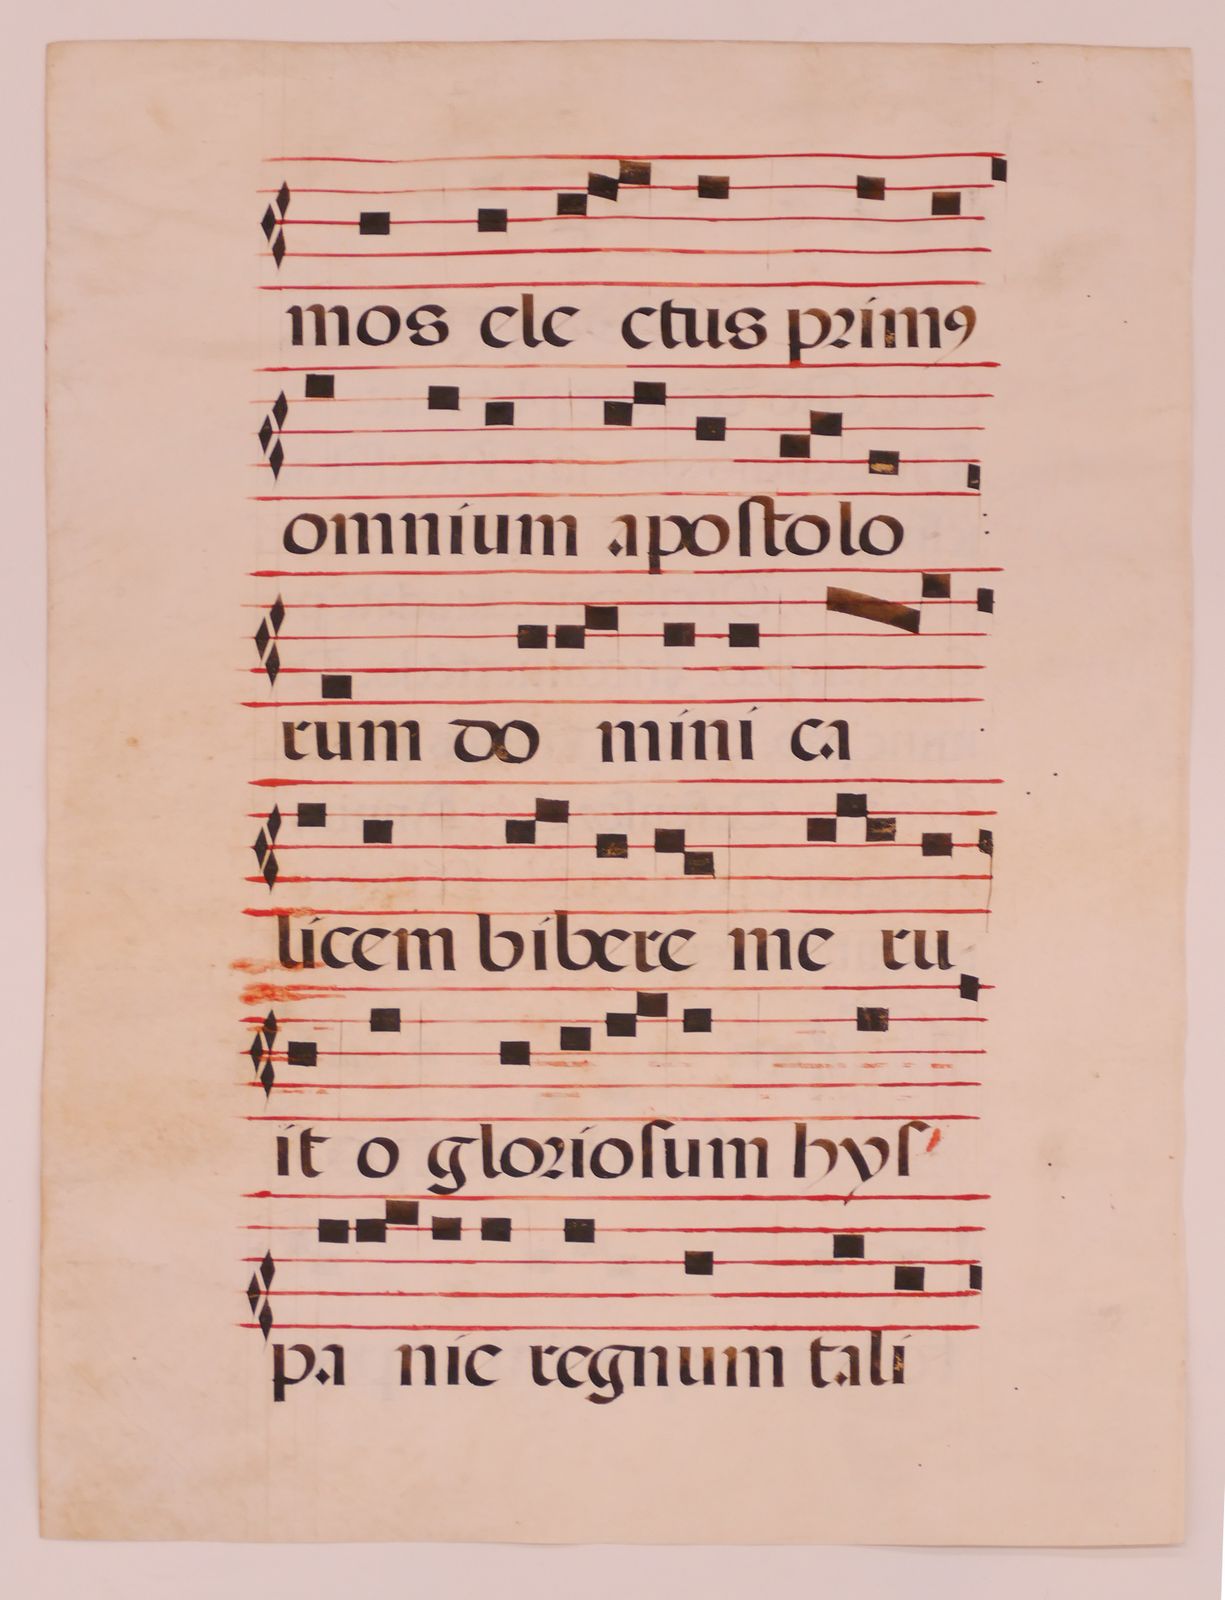 mos ele ctus primꝯ
omnium apoſtolo
rum do mini ca
licem bibere me ru
it o glorioſum hyſ'
pa nie regnum tali